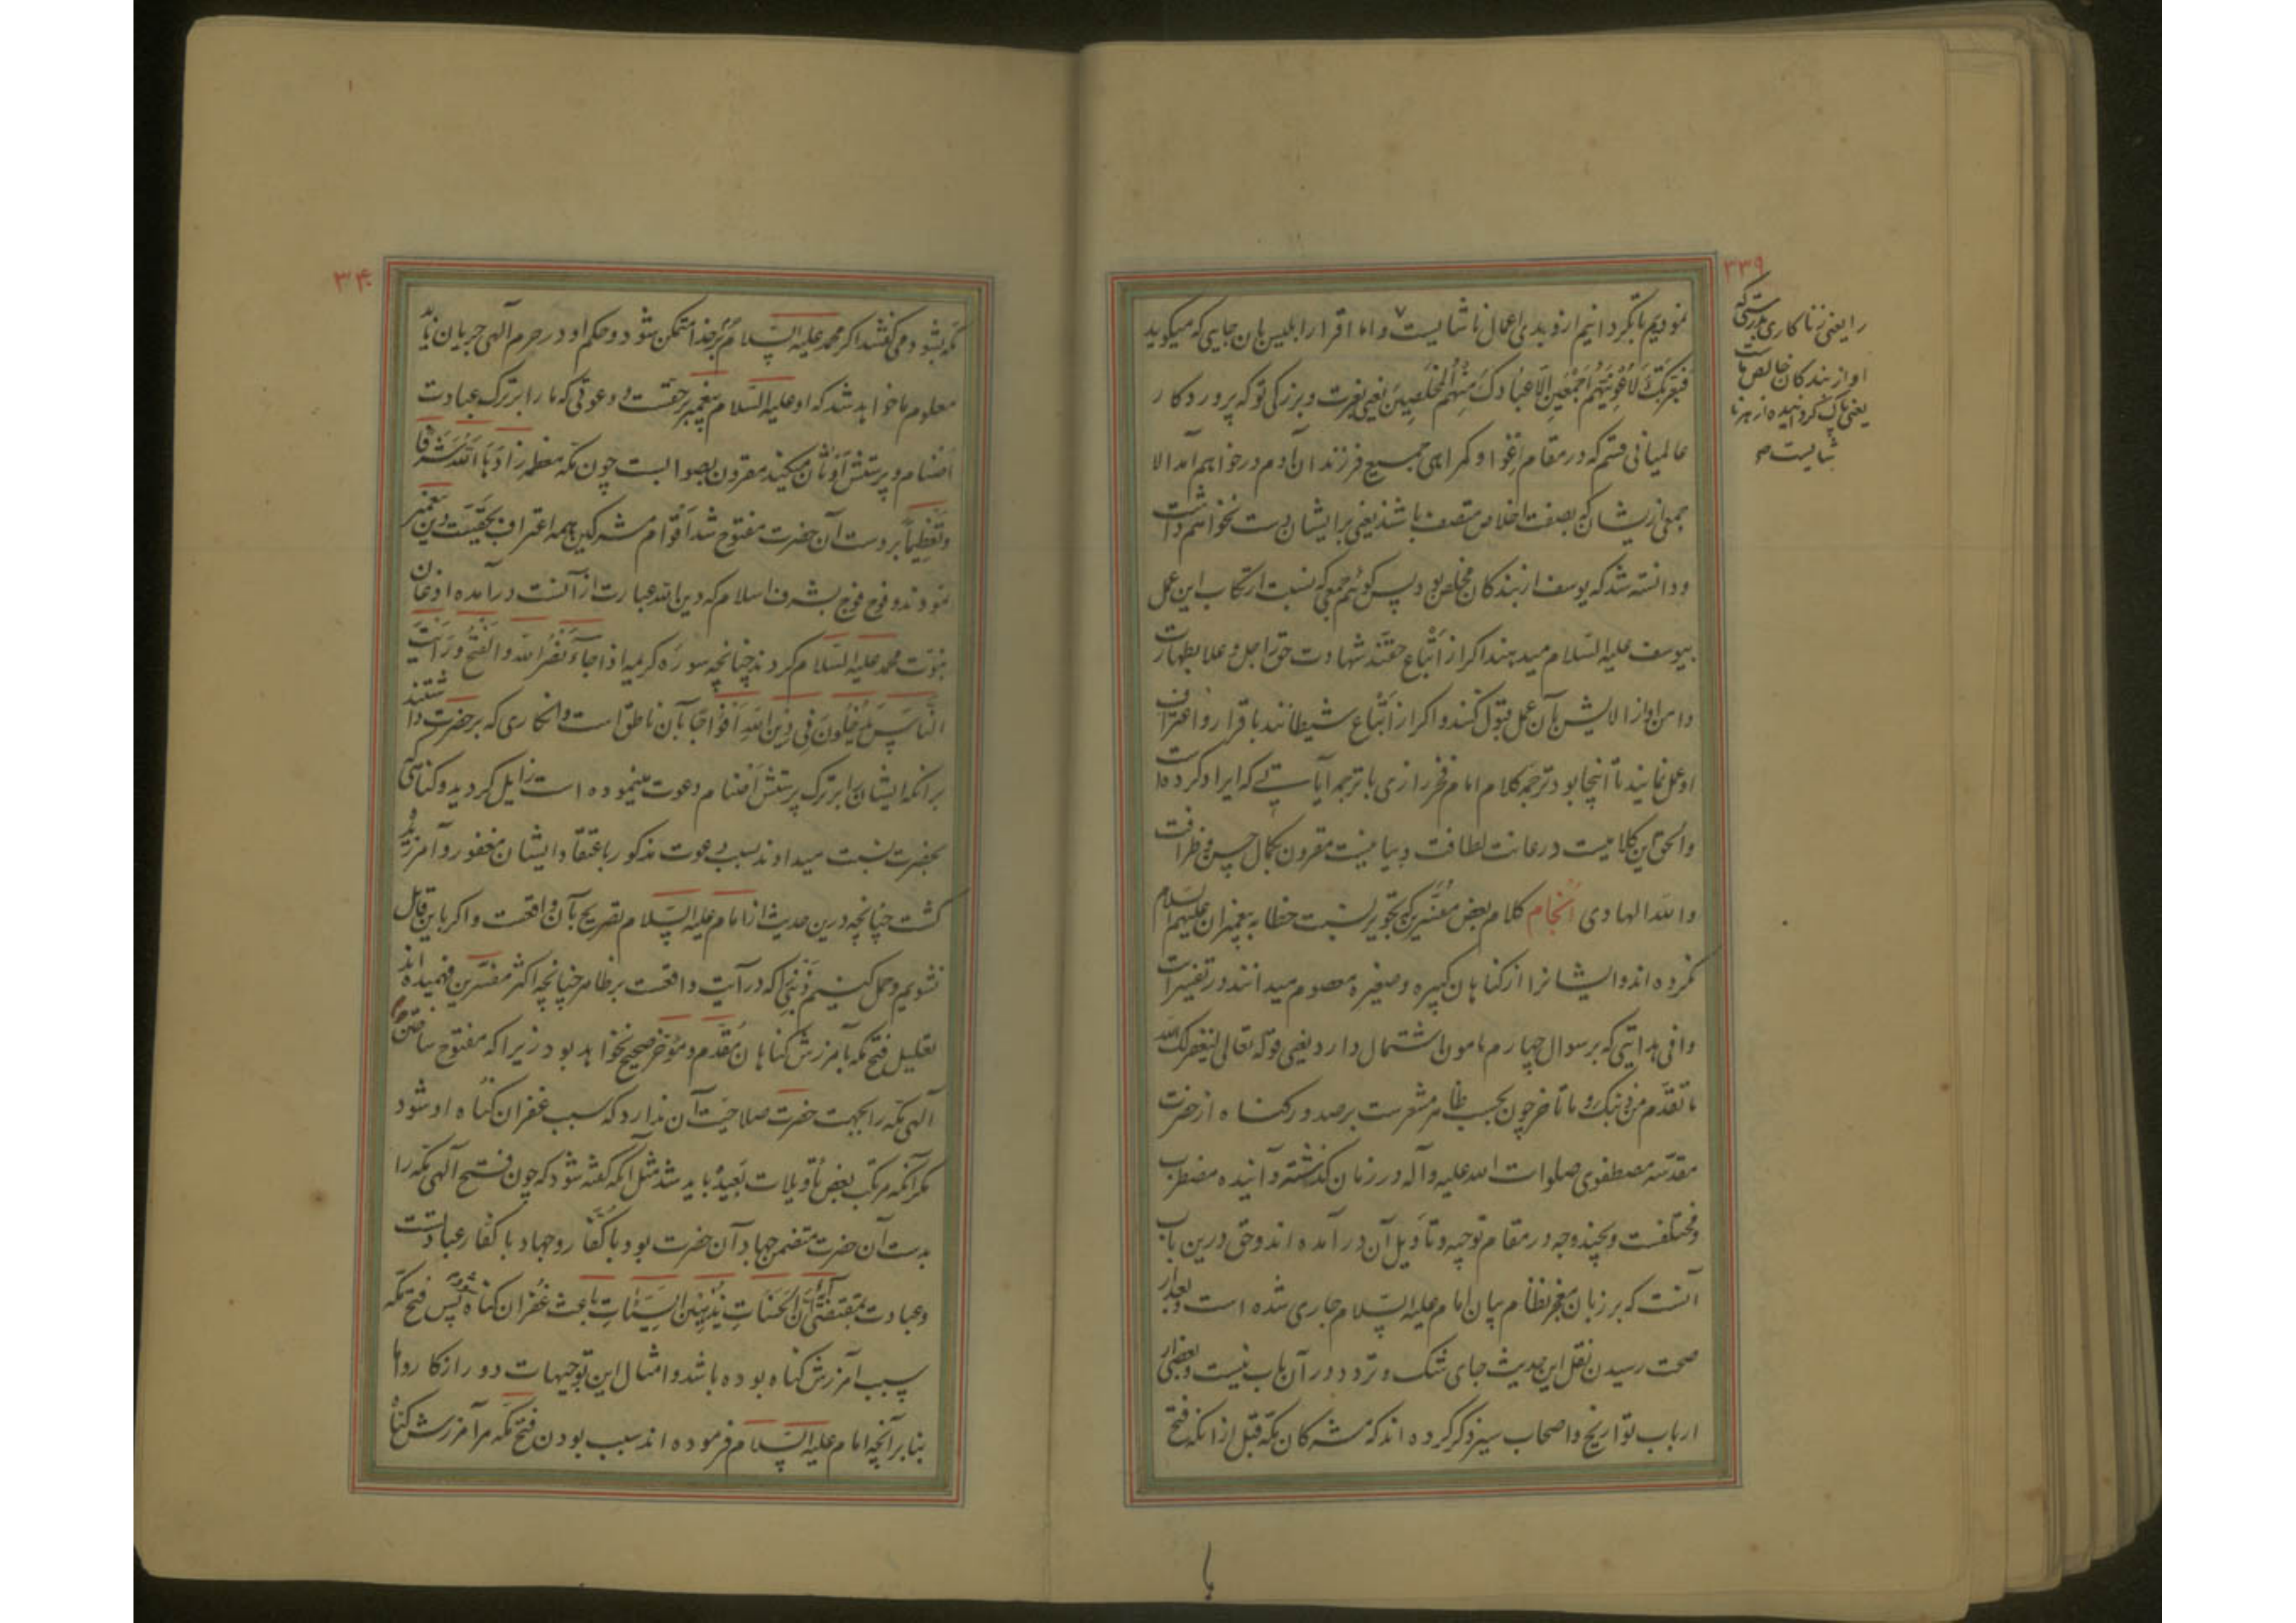 ۳۳۹
نمودیم تا بگردانیم ازو بدی اعمال ناشایست و اما اقرار ابلیس بان جایی که میکوید
فبعزتک لاغوینهم اجمعین الا عبادک منهم المخلصین یعنی بعزت و بزرکی تو که پروردکار
عالمیانی قسم که در مقام اغوا و کمراهی جمیع فرزندان آدم درخواهم آمد الا
جمعی از یشان که بصفت اخلاص متصف باشند یعنی بر ایشان دست نخواهم داشت
و دانسته شد که یوسف از بندکان مخلص بود پس کوئیم جمعی که نسبت ارتکاب این عمل
بیوسف علیه السلام میدهند اکر از اتباع حقند شهادت حق را جل و علا بطهارت
دامن او از الایش بآن عمل قبول کنند و اکر از اتباع شیطانند باقرار و اعتراف
او عمل نمایند تا اینجا بود ترجمه کلام امام فخر رازی با ترجمه آیاتی که ایراد کرده است
والحق این کلامیست در غایت لطافت و بیانیست مقرون بکمال حسن و ظرافت
والله الهادی انجام کلام بعض مفسرین که تجویز نسبت خطا به پیغمبران علیهم السلام
نکرده اند و ایشانرا از کناهان کبیره و صغیره معصوم میدانند در تفسیر آیت
وافی هدایتی که بر سوال چهارم مامون اشتمال دارد یعنی قوله تعالی لیغفر لک الله
ما تقدم من ذنبک و ما تاخر چون بحسب ظاهر مشعرست بر صدور کناه از حضرت
مقدسه مصطفوی صلوات الله علیه و آله در زمان کذشته و آینده مضطرب
و مختلفست و بچند وجه در مقام توجیه و تأویل آن درآمده اند و حق درین باب
آنست که بر زبان معجز نظام بیان امام علیه السلام جاری شده است و بعد از
صحت رسیدن نقل این حدیث جای شک و تردد در آن باب نیست و بعضی از
ارباب تواریخ و اصحاب سیر ذکر کرده اند که مشرکان مکه قبل از انکه فتح
را یعنی زناکاری بدرستی که
او از بندکان خالص ماست
یعنی پاک کردانیده از هر نا
شایست
۳۴۰
مکه بشود می کفتند اکر محمد علیه السلام بر خذا متمکن شود و حکم او در حرم آلهی جریان یابد
معلوم ما خواهد شد که او علیه السلام پیغمبر بر حقست و دعوتی که ما را بر ترک عبادت
اصنام و پرستش اوثان میکند مقرون بصوابست چون مکه معظمه زادها الله شرفا
و تعظیما بر دست آن حضرت مفتوح شد اقوام مشرکین همه اعتراف بحقیت دین پیغمبر
نمودند و فوج فوج بشرف اسلام که دین الله عبارت از آنست درآمده اذعان
نبوت محمد علیه السلام کردند چنانچه سوره کریمه اذا جاء نصر الله والفتح ورایت
الناس یدخلون فی دین الله افواجا بآن ناطق است و انکاری که بر حضرت داشتند
بر انکه ایشان را بر ترک پرستش اصنام دعوت مینموده است زایل کردید و کناهی که
بحضرت نسبت میدادند بسبب دعوت مذکور باعتقاد ایشان مغفور و آمرزیده
کشت چنانچه درین حدیث از امام علیه السلام تصریح بآن واقعست و اکر باین قائل
نشویم و حمل کنیم ذنبی را که در آیت واقعست بر ظاهر چنانچه اکثر مفسرین فهمیده اند
تعلیل فتح مکه بآمرزش کناهان مقدم و مؤخر صحیح نخواهد بود زیرا که مفتوح ساختن
آلهی مکه را بجهت حضرت صلاحیت آن ندارد که سبب غفران کناه او شود
مکر آنکه مرتکب بعض تأویلات بعیده باید شد مثل انکه کفته شود که چون فتح آلهی مکه را
بدست آن حضرت متضمن جهاد آن حضرت بود با کفار و جهاد با کفار عبادتست
و عبادت بمقتضی ان الحسنات یذهبن السیئات باعث غفران کناه شود پس فتح مکه
سبب آمرزش کناه بوده باشد و امثال این توجیهات دور از کار و اما
بنابر آنچه امام علیه السلام فرموده اند سبب بودن فتح مکه مر آمرزش کناه